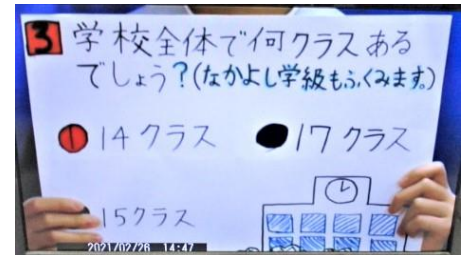 3 学校全体で何クラスある
でしょう?(なかよし学級もふくみます。)
14クラス
17クラス
15クラス
2021/02/26 14:47